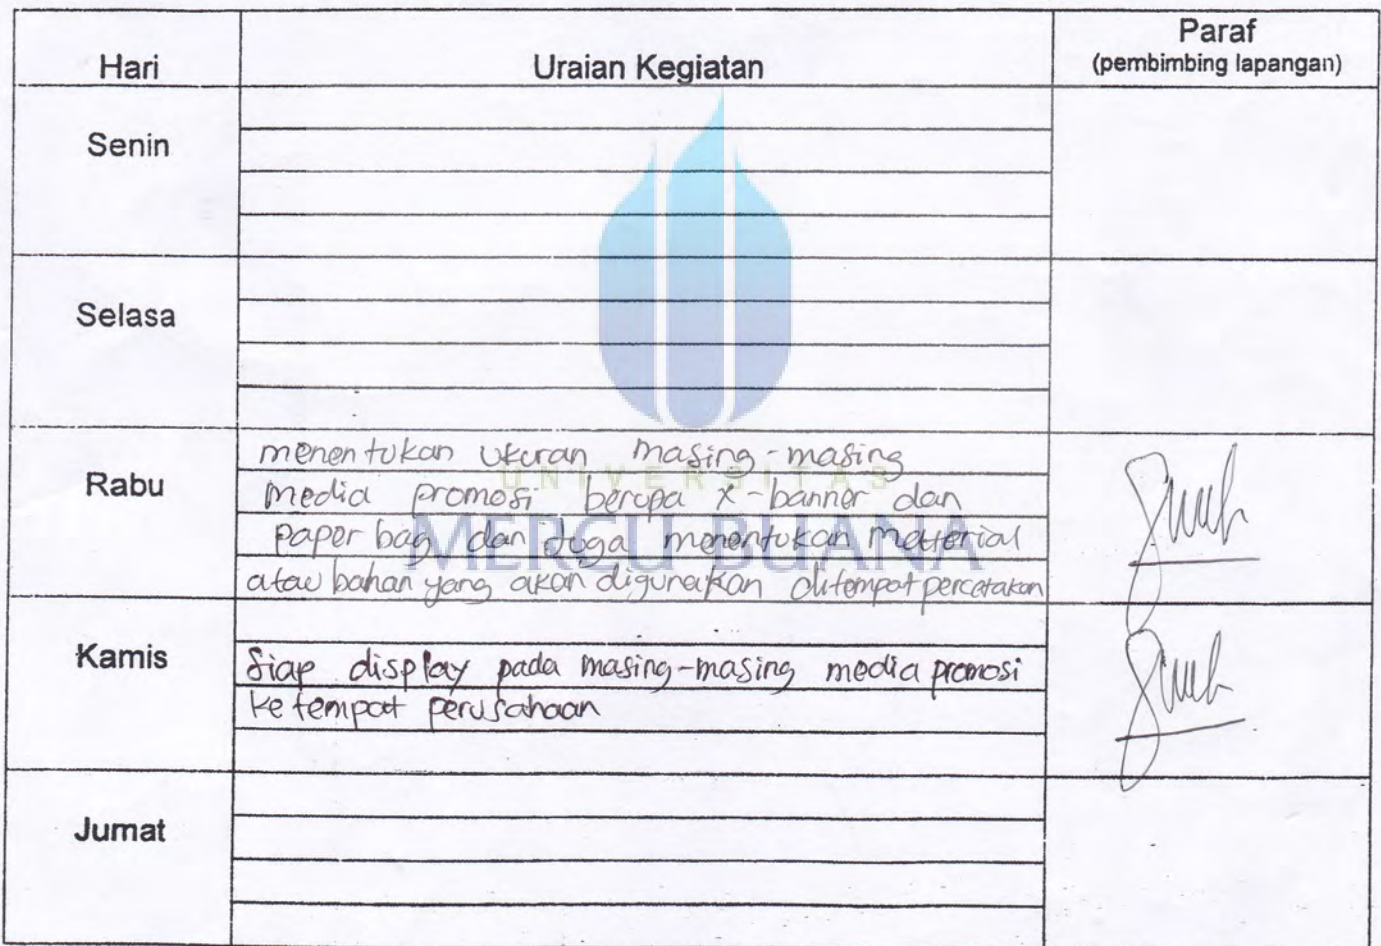 Hari Uraian Kegiatan Paraf
(pembimbing lapangan)
Senin
Selasa
Rabu
menentukan ukuran masing-masing
media promosi berupa x-banner dan
paper bag dan juga menentukan metterial
atau bahan yang akan digunakan ditempat percetakan
UNIVERSITAS
MERCU BUANA
Kamis
Siap display pada masing-masing media promosi
ke tempat perusahaan
Jumat